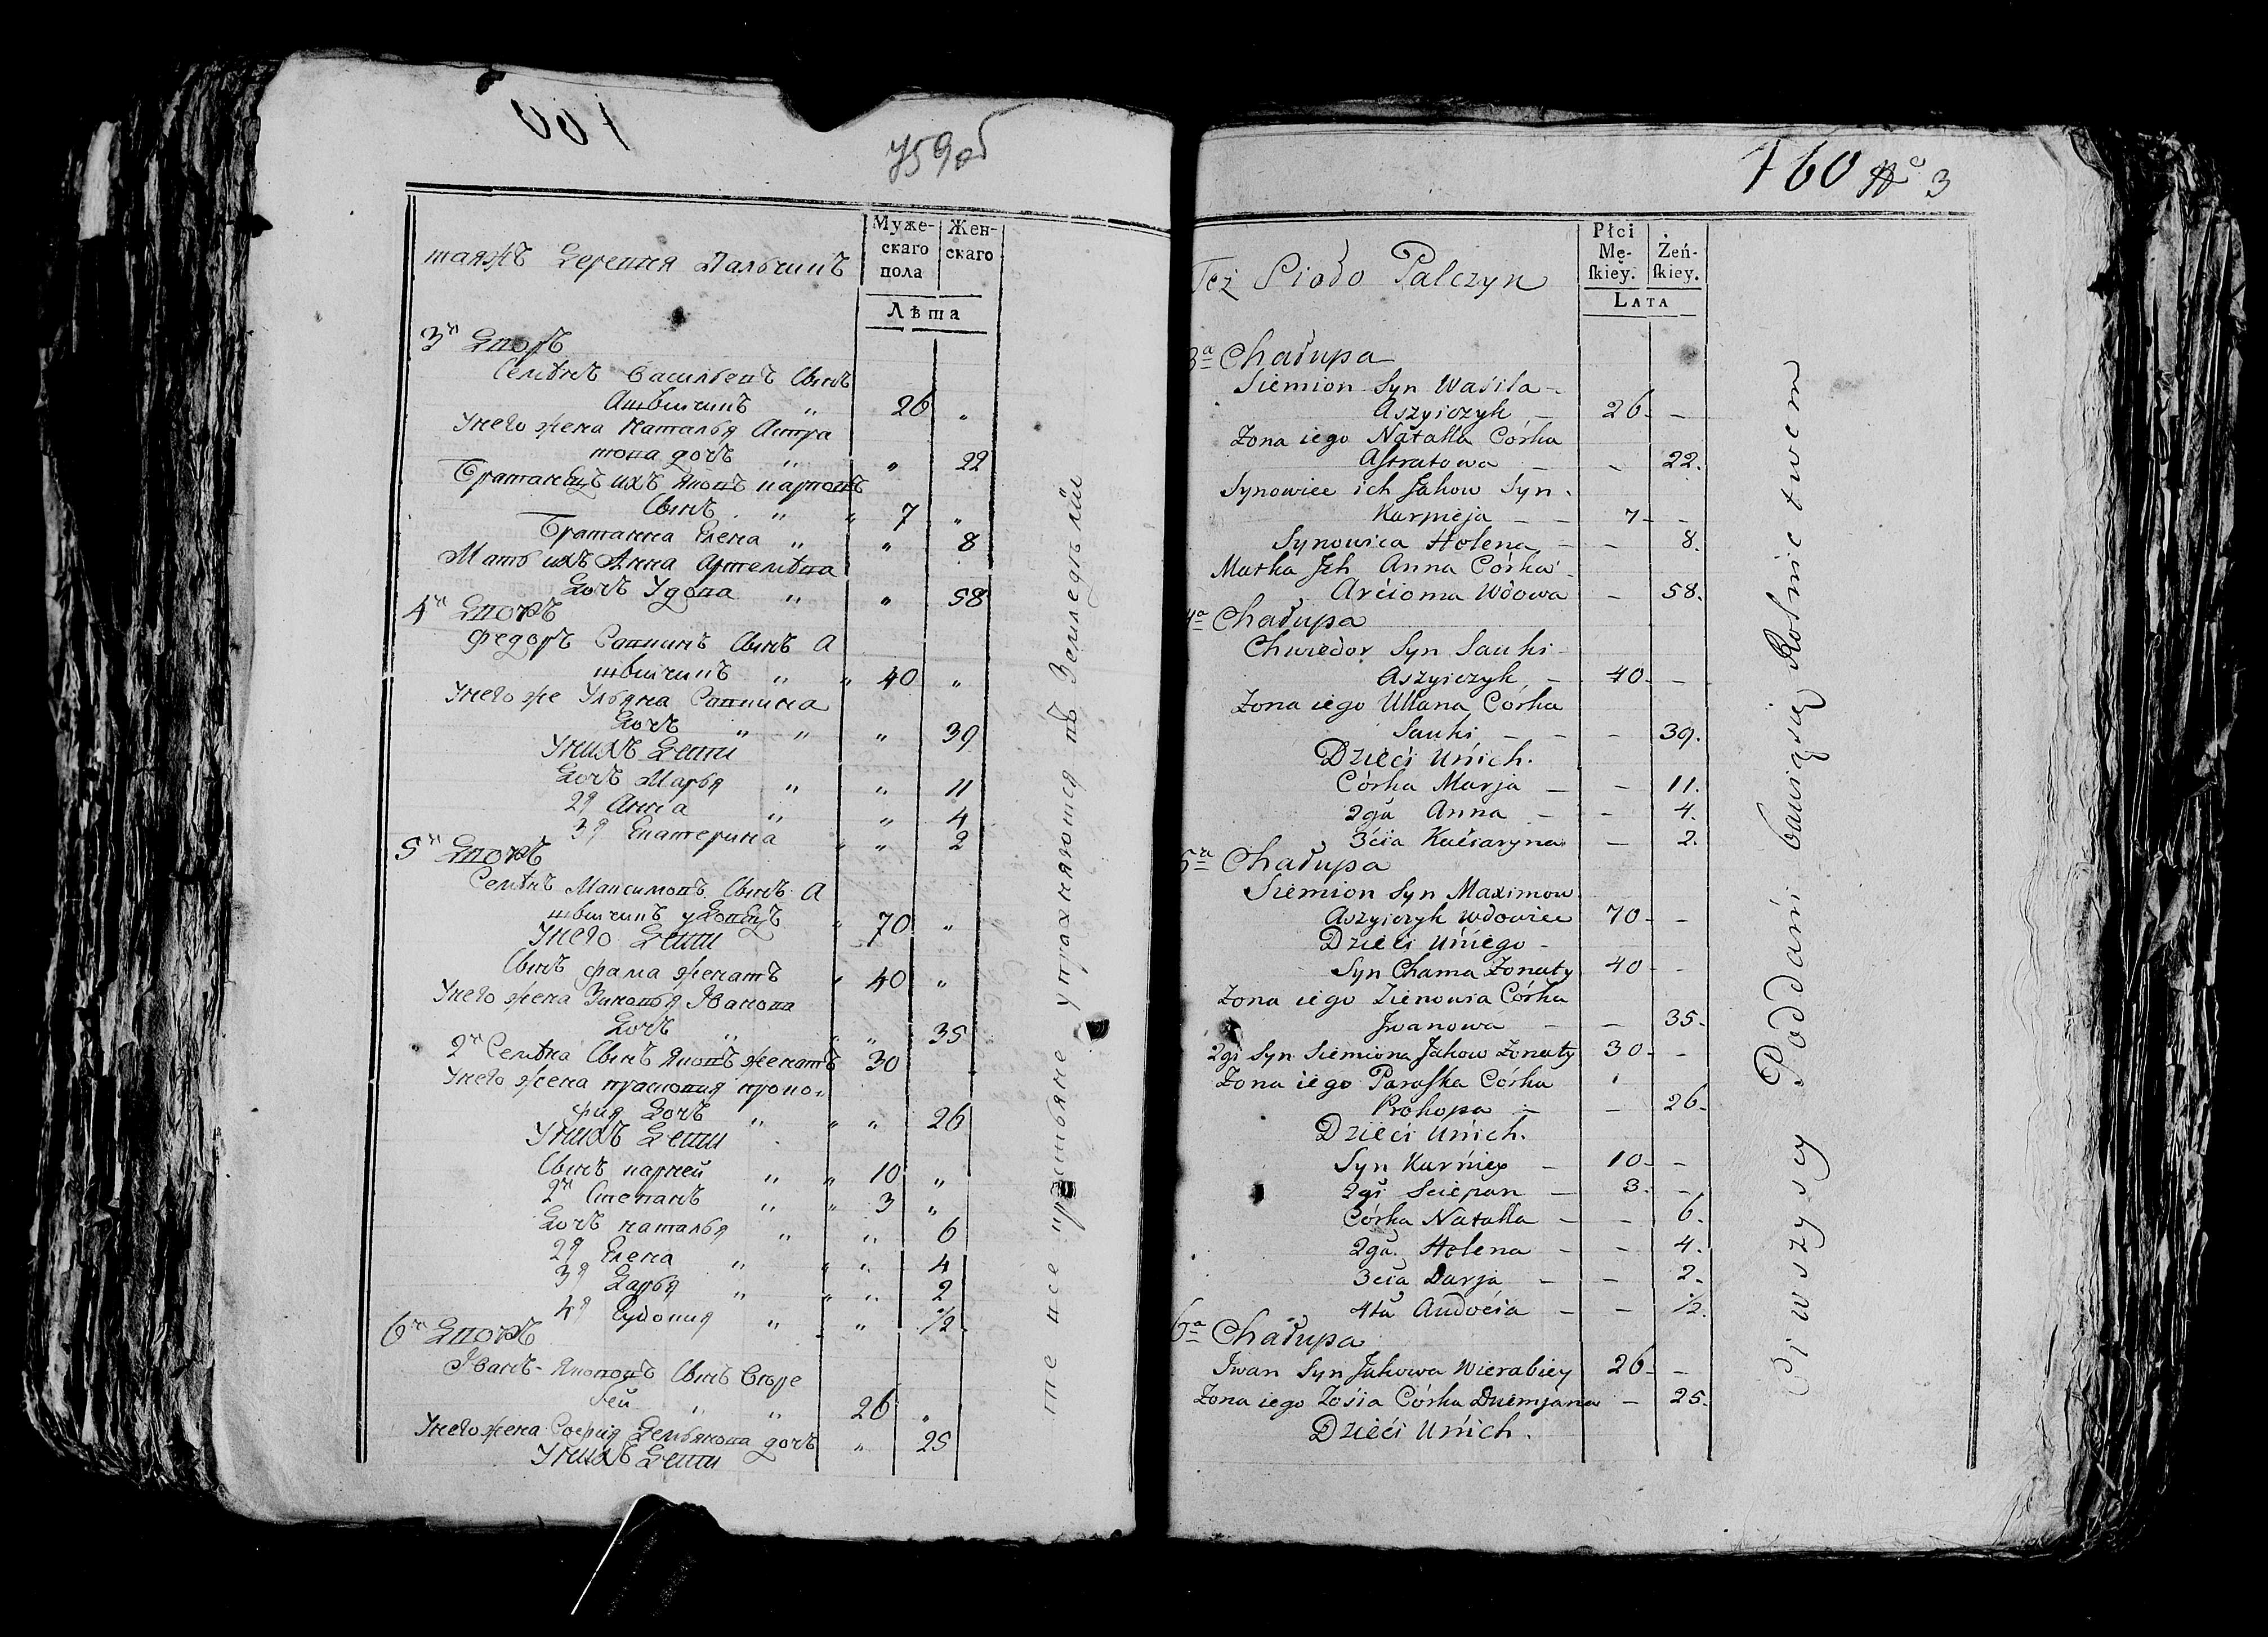 759об
таяжъ Деревня Пальчинъ
Муже-
скаго
пола
Жен-
скаго
Лѣта
3й Дворъ
Семѣнъ Васильевъ Сынъ
Ашвинчикъ " 26 "
Унего жена Наталья Астра
това дочь " " 22
Братанецъ ихъ Яковъ карповъ
Сынъ " " 7 "
Братанка Елена " " 8
Мать ихъ Анна Артемѣва
Дочь Удова " " 58
4й Дворъ
Федоръ Савкинъ Сынъ А
швинчикъ " " 40 "
Унего же Ульяна Савкина
Дочь " " " 39
Унихъ Дети
Дочь Марья " " 11
2я Анна " " 4
3я Екатерина " " 2
5й Дворъ
Семѣнъ Максимовъ Сынъ А
швинчикъ удовецъ " 70 "
Унего Дети
Сынъ фама женатъ " 40 "
Унего жена Зиновья Иванова
Дочь " " " 35
2й Семѣна Сынъ Яковъ женатъ 30
Унего жена прасковия проко
фия Дочь " " " 26
Унихъ Дети
Сынъ карней " " 10 "
2й Степанъ " " 3 "
Дочь наталья " " 6
2я Елена " " " 4
3я Дарья " " " 2
4я Еудокия " " 1/2
6й Дворъ
Иванъ Якововъ Сынъ Вере
бей " " 26 "
Унего жена София Демьянова дочь " 25
Унихъ Дети
те все крестьяне упражняются въ Земледѣлiи
760 No 3
Też Sioło Palczyn
Płci
Mę-
ſkiey.
Żeń-
ſkiey.
LATA
3a Chałupa
Siemion Syn Wasila -
Aszyiczyk - 26 - -
Zona iego Natalla Córka
Aſtratowa - - 22.
Synowiec ich Jakow Syn -
Karpieja - - 7 - -
Synowica Holena - - 8.
Matka Ich Anna Córka
Arcioma Wdowa - 58.
4a Chałupa
Chwiedor Syn Sauki
Aszyiczyk - 40 - -
Zona iego Ullana Córka
Sauki - - - 39.
Dzieci Unich.
Córka Marja - - 11.
2ga Anna - - 4.
3cia Kaciaryna - 2.
5ta Chałupa
Siemion Syn Maximow
Aszyiczyk Wdowiec 70 - -
Dzieci Uniego -
Syn Chama Zonaty 40 - -
Zona iego Zienowia Córka
Iwanowa - - 35 -
2gi Syn Siemiona Jakow Zonaty 30 - -
Zona iego Paraſka Córka
Prokopa - - 26 -
Dzieci Unich.
Syn Karniey - 10 - -
2gi Sciepan - 3 - -
Córka Natalla - - 6.
2ga Holena - - 4.
3cia Darja - - 2.
4ta Audocia - - 1/2.
6a Chałupa
Iwan Syn Jakowa Wierabiey 26 - -
Zona iego Zosia Córka Dziemjana - 25.
Dzieci Unich.
Ci wszyscy Poddani bawiąsię Rolnictwem